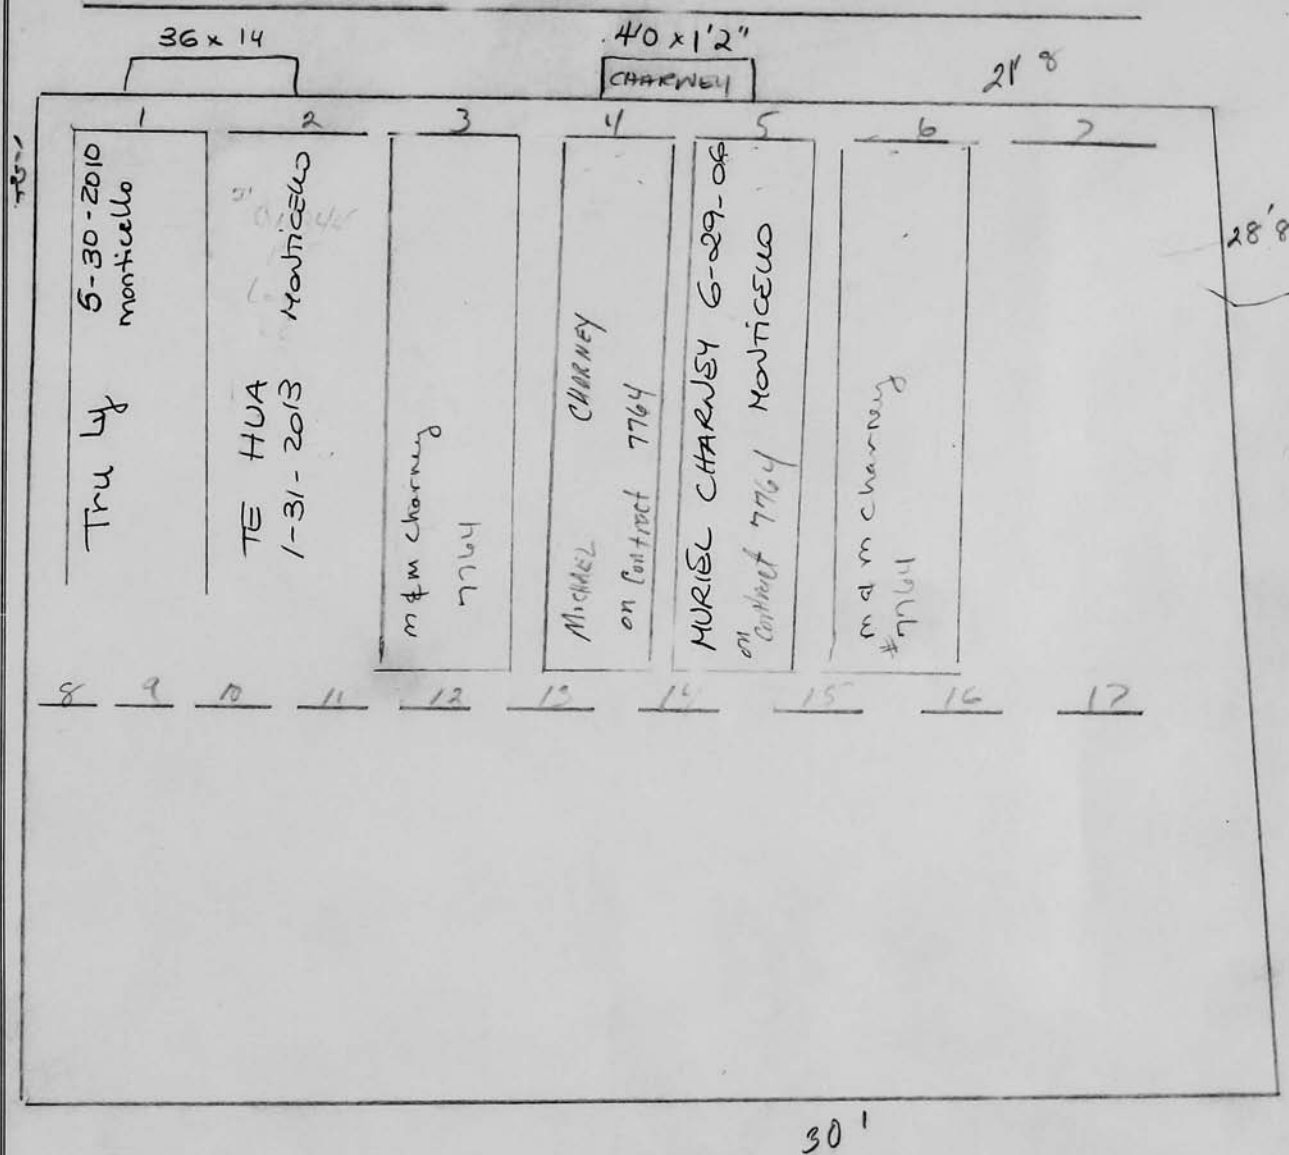 36 x 14
40 x 1'2"
CHARNEY
21' 8
1 2 3 4 5 6 7
28' 8
Tru Ly 5-30-2010
monticello
TE HUA MONTICELLO
1-31-2013
m & m charney
7764
MICHAEL CHARNEY
on Contract 7764
MURIEL CHARNEY 6-29-06
on Contract 7764 MONTICELLO
m & m charney
# 7764
8 9 10 11 12 13 14 15 16 17
30'